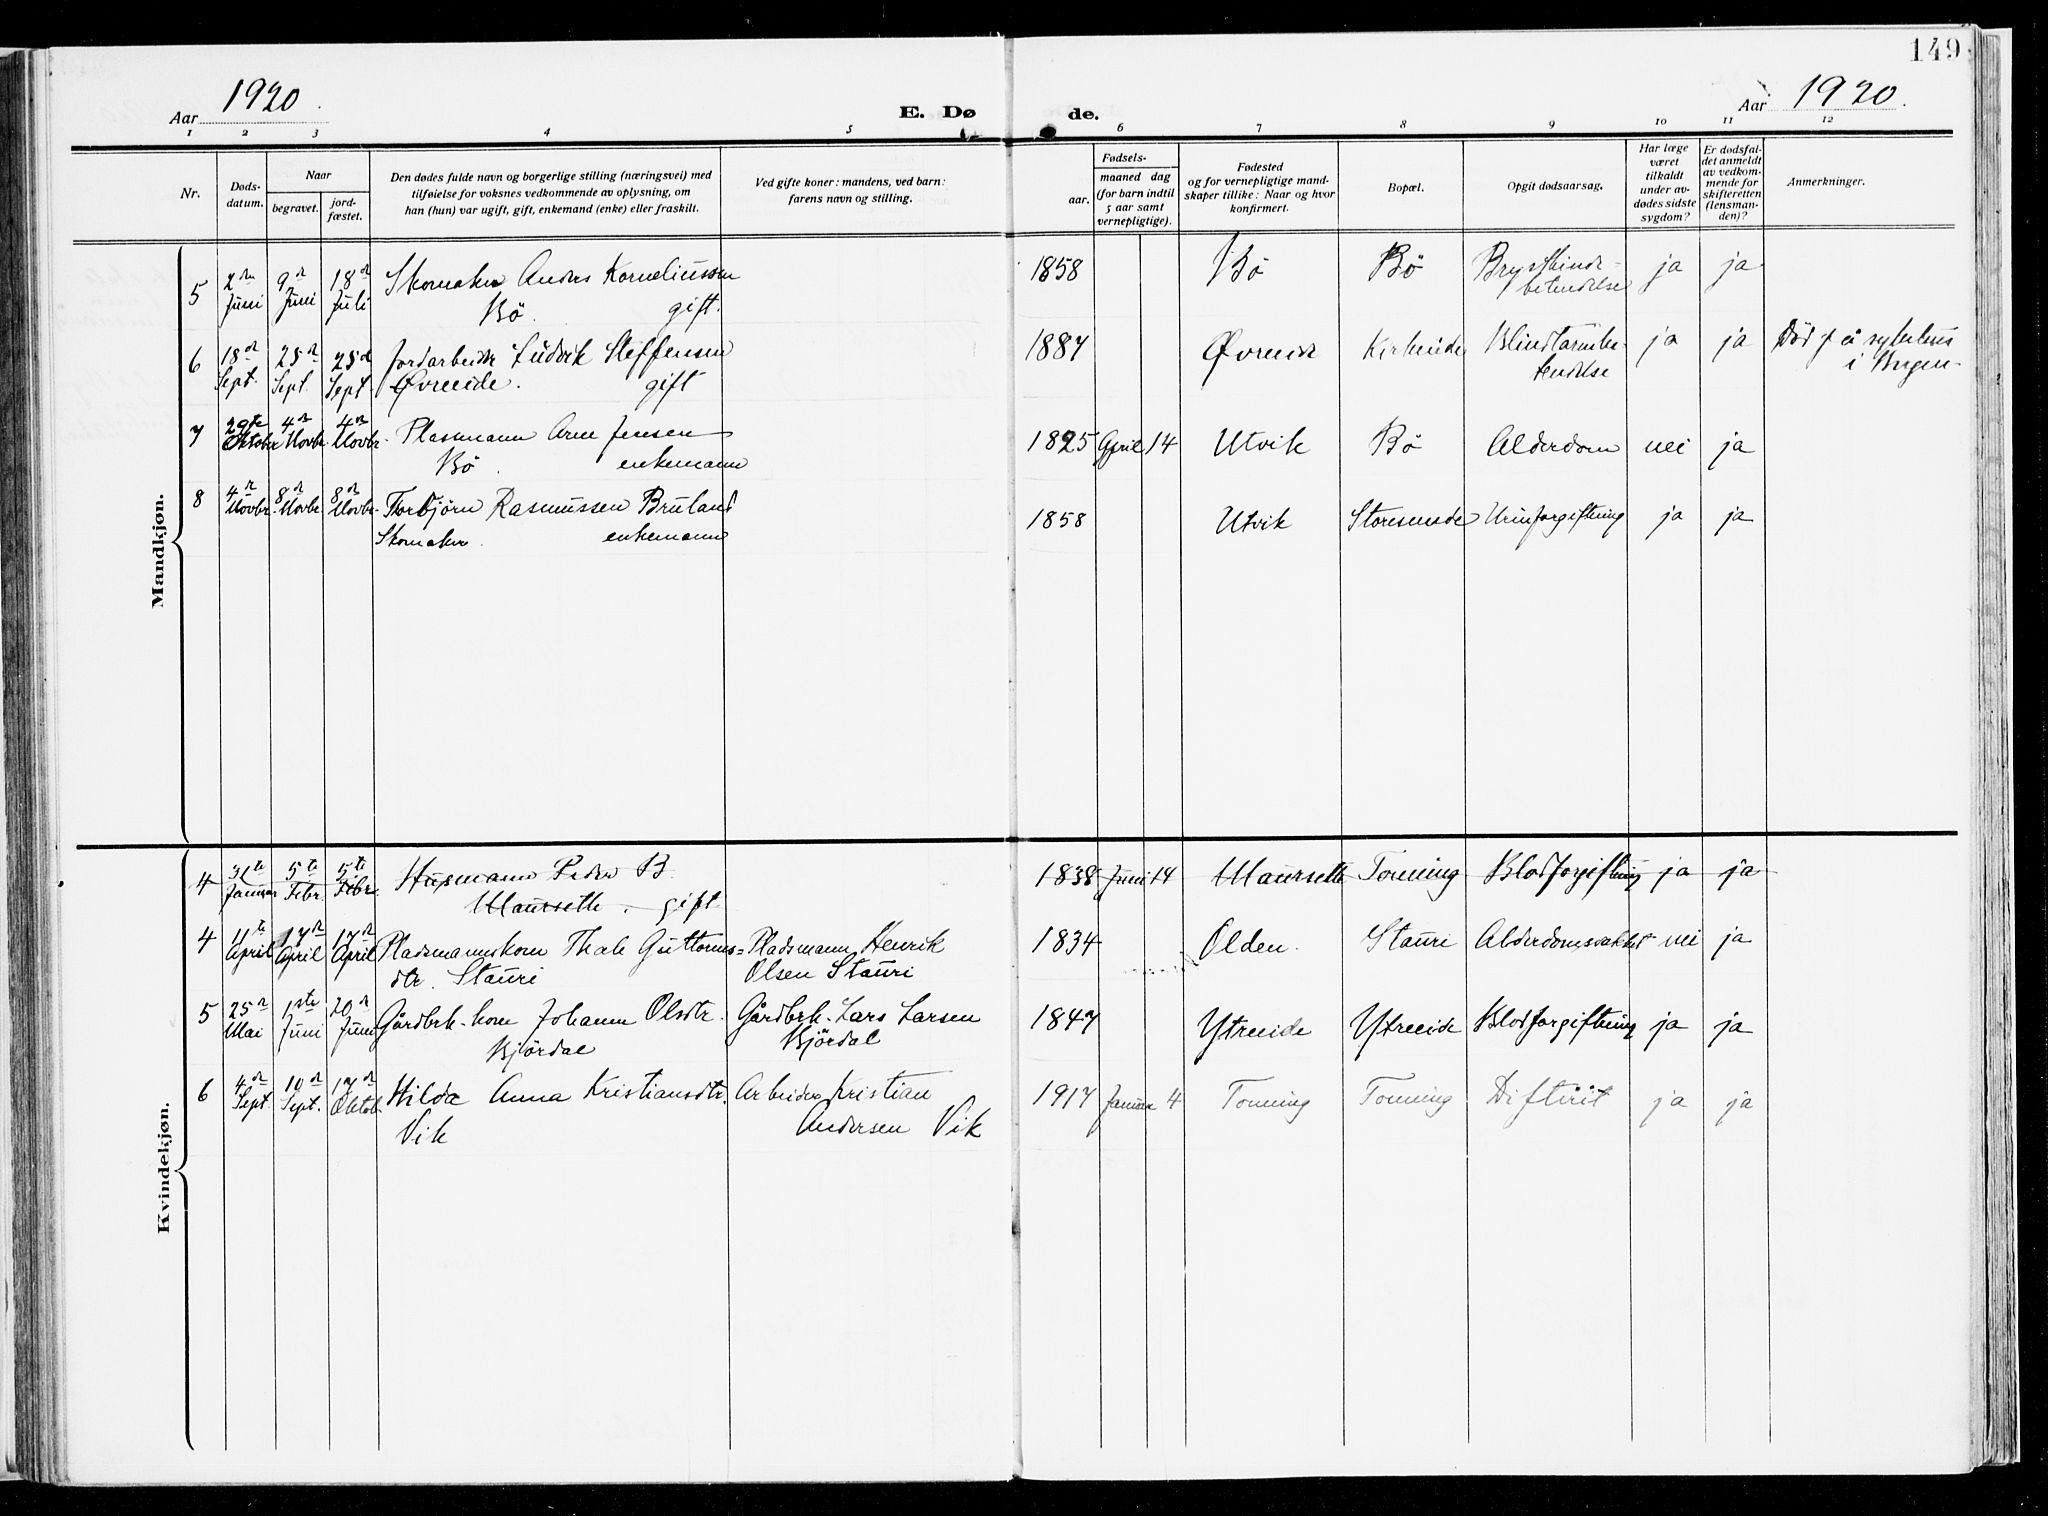 149
Aar 1920.
E. Dø de.
Aar 1920.
1 2 3 4 5 6 7 8 9 10 11 12
Nr.
Døds-
datum.
Naar
begravet.
jord-
fæstet.
Den dødes fulde navn og borgerlige stilling (næringsvei) med
tilføielse for voksnes vedkommende av oplysning, om
han (hun) var ugift, gift, enkemand (enke) eller fraskilt.
Ved gifte koner: mandens, ved barn:
farens navn og stilling.
Fødsels-
aar.
maaned dag
(for barn indtil
5 aar samt
vernepligtige).
Fødested
og for vernepligtige mand-
skaper tillike: Naar og hvor
konfirmert.
Bopæl.
Opgit dødsaarsag.
Har læge
været
tilkaldt
under av-
dødes sidste
sygdom?
Er dødsfal-
det anmeldt
av vedkom-
mende for
skifteretten
(lensman-
den)?
Anmerkninger.
Mandkjøn.
5 2den 9de 18de Skomaker Anders Korneliussen 1858 Bö Bö Brysthinde- ja ja
Juni Juni Juli Bö. gift. betendelse
6 18de 25de 25de Jordarbeider Ludvik Steffensen 1887 Øvreeide Kirkeeide Blindtarmbe- ja ja Död på sykehus
Sept. Sept. Sept. Øvreeide. gift tendelse i Bergen-
7 29te 4de 4de Plassmann Arne Jensen 1825 April 14 Utvik Bö Alderdom nei ja
Oktober Novbr. Novbr. Bö. enkemann
8 4de 8de 8de Torbjörn Rasmussen Bruland 1858 Utvik Storesunde Urinforgiftning ja ja
Novbr. Novbr. Novbr. Skomaker. enkemann
Kvindekjøn.
4 31te 5te 5te Husmann Peder B. 1838 Juni 14 Maursette Tonning Blodforgiftning ja ja
Januar Febr. Febr. Maursette. gift.
4 11te 17de 17de Pladsmannskone Thale Guttorms= Pladsmann Henrik 1834 Olden. Stauri Alderdomssvakhet nei ja
April April April dtr. Stauri Olsen Stauri
5 25de 1ste 20de Gårdbrk.kone Johanne Olsdtr. Gårdbrk. Lars Larsen 1847 Ytreeide Ytreeide Blodforgiftning ja ja
Mai Juni Juni Björdal Björdal
6 4de 10de 17de Hilda Anna Kristiansdtr. Arbeider Kristian 1917 Januar 4 Tonning Tonning Diftirit ja ja
Sept. Sept. Oktob. Vik Andersen Vik